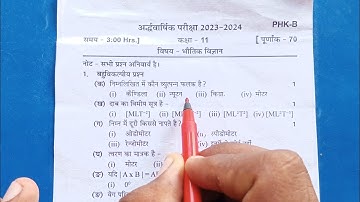 अर्द्धवार्षिक परीक्षा 2023-2024
PHK-B
समय - 3:00 Hrs.]
कक्षा - 11
[ पूर्णांक - 70
विषय - भौतिक विज्ञान
नोट - सभी प्रश्न अनिवार्य है।
1. बहुविकल्पीय प्रश्न
(क) निम्नलिखित में कौन व्युत्पन्न फलक है?
(i) कैण्डिला (ii) न्यूटन (iii) किग्रा. (iv) मोटर
(ख) दाब का विमीय सूत्र है - 1
(i) [MLT⁻¹] [ML⁻¹T⁻²] (iv) [ML²T⁻²]
(ग) निम्न में दूरी किससे नापते हैं? 1
(i) ओडोमीटर स्पीडोमीटर
(iii) रेन्जोमीटर
(घ) त्वरण का मात्रक है -
(i) मीटर (ii)
(ङ) यदि | A x B | = A
(i) 0°